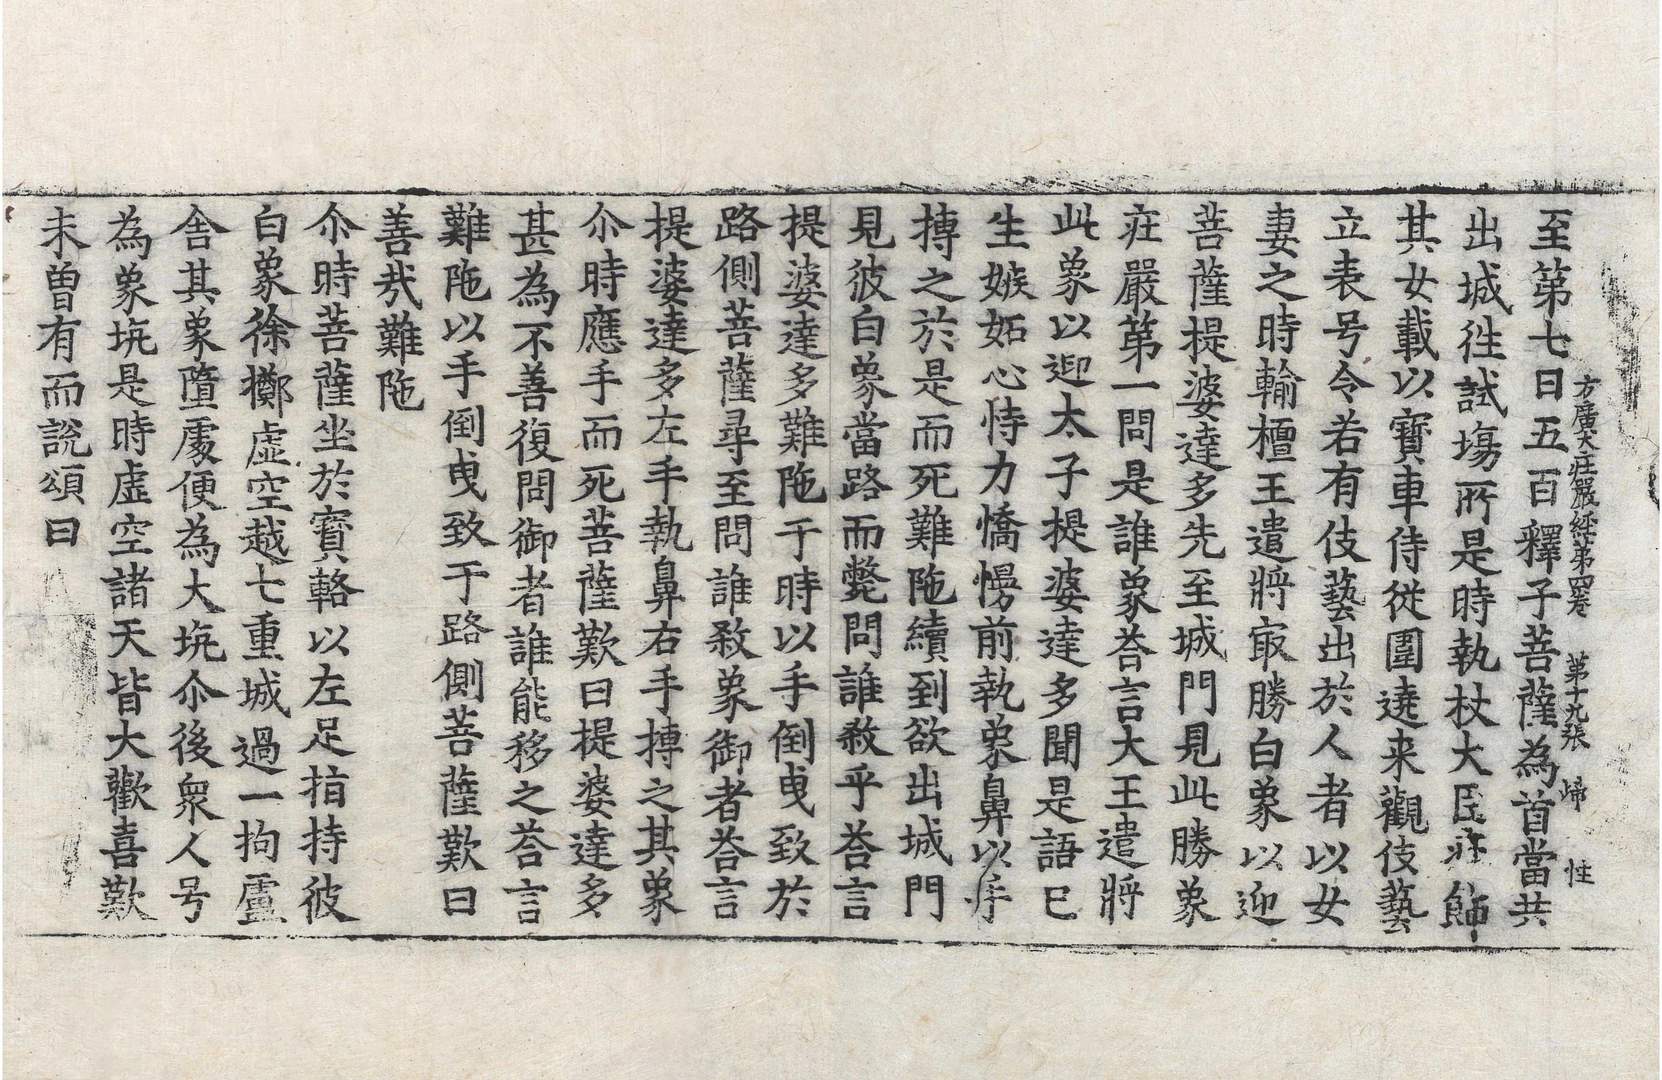 方廣大莊嚴經第四卷 第十九張 歸 性
至第七日五百釋子菩薩為首當共
出城徃試塲所是時執杖大臣莊飾
其女載以寶車侍従圍遶来觀伎藝
立表号令若有伎藝出於人者以女
妻之時輸檀王遣將㝡勝白象以迎
菩薩提婆達多先至城門見此勝象
莊嚴第一問是誰象荅言大王遣將
此象以迎太子提婆達多聞是語已
生嫉妬心恃力憍慢前執象鼻以手
摶之於是而死難陁續到欲出城門
見彼白象當路而斃問誰敎乎荅言
提婆達多難陁于時以手倒曳致於
路側菩薩尋至問誰敎象御者荅言
提婆達多左手執鼻右手摶之其象
尒時應手而死菩薩歎曰提婆達多
甚為不善復問御者誰能移之荅言
難陁以手倒曳致于路側菩薩歎曰
善㦲難陁
尒時菩薩坐於寶輅以左足指持彼
白象徐擲虛空越七重城過一拘盧
舎其象墮處便為大坑尒後衆人号
為象坑是時虛空諸天皆大歡喜歎
未曽有而說頌曰